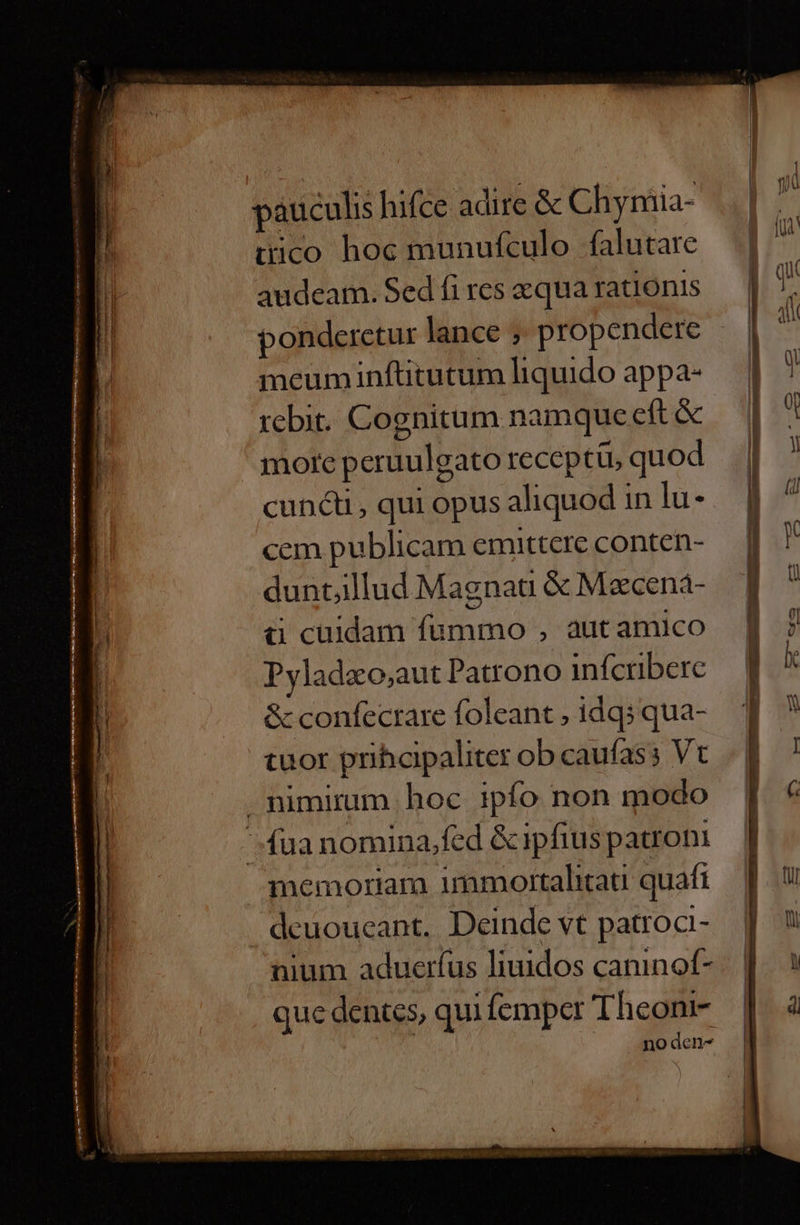 pauculis hiſce adire & Chymia-
trico hoc munuſculo ſalutare
audeam. Sed ſi res æqua rationis
ponderetur lance ; propendere
meum inſtitutum liquido appa-
rebit. Cognitum namque eſt &
more peruulgato receptũ, quod
cuncti, qui opus aliquod in lu-
cem publicam emittere conten-
dunt, illud Magnati & Mæcena-
ti cuidam ſummo , aut amico
Pyladæo, aut Patrono inſcribere
& conſecrare ſoleant , idq; qua-
tuor principaliter ob cauſas; Vt
nimirum hoc ipſo non modo
ſua nomina, ſed & ipſius patroni
memoriam immortalitati quaſi
deuoueant. Deinde vt patroci-
nium aduerſus liuidos caninoſ-
que dentes, qui ſemper Theoni-
no den-